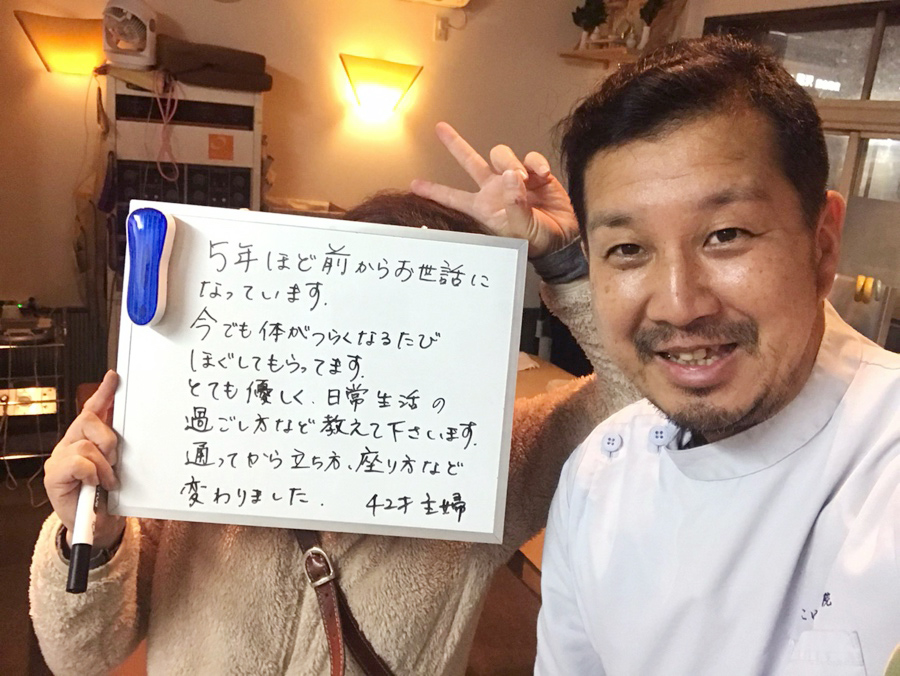 5年ほど前からお世話に
なっています.
今でも体がつらくなるたび
ほぐしてもらってます.
とても優しく、日常生活の
過ごし方など教えて下さいます.
通ってから立ち方、座り方など
変わりました.
42才 主婦
院